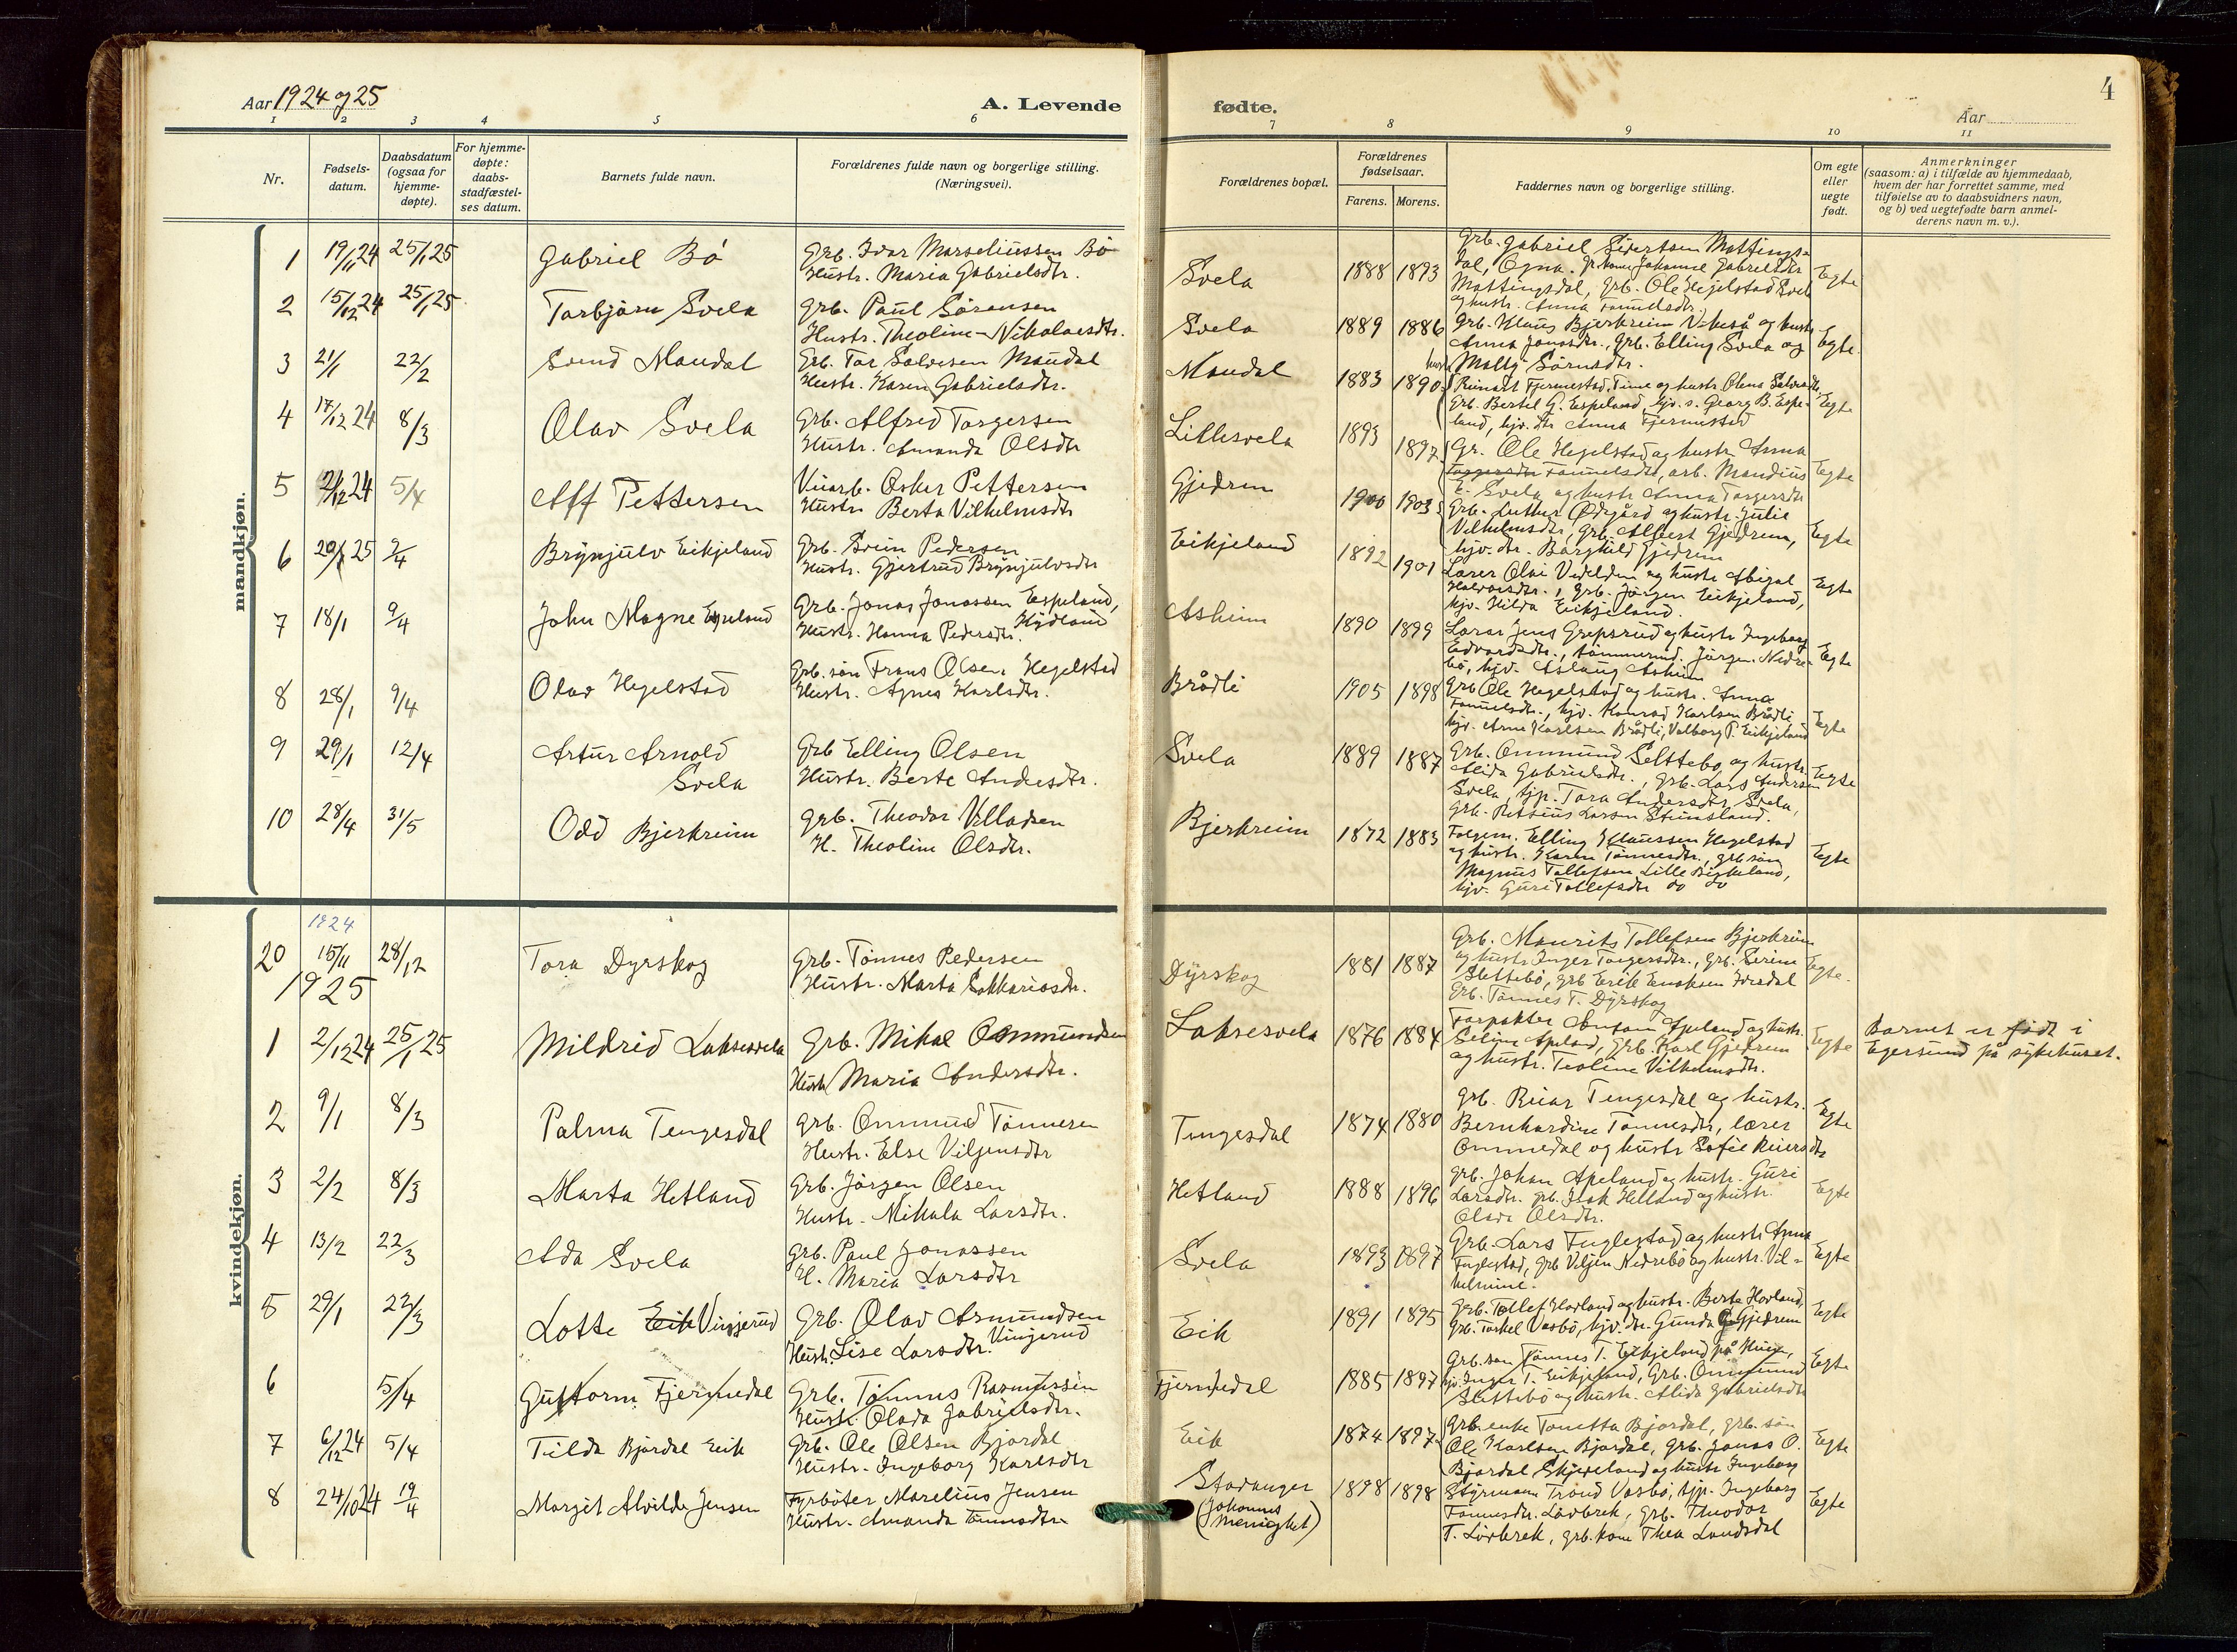 Aar 1924 og 25
A. Levende
1 2 3 4 5 6
Nr.
Fødsels-
datum.
Daabsdatum
(ogsaa for
hjemme-
døpte).
For hjemme-
døpte:
daabs-
stadfæstel-
ses datum.
Barnets fulde navn.
Forældrenes fulde navn og borgerlige stilling.
(Næringsvei).
mandkjøn.
1 19/11 24 25/1 25 Gabriel Bö Grb. Ivar Marseliussen Bö
Hustr. Maria Gabrielsdtr.
2 15/12 24 25/1 25 Torbjörn Svela Grb. Paul Sörensen
Hustr. Theoline Nikolaesdtr.
3 21/1 22/2 Svend Maudal Grb. Tor Salvesen Maudal
Hustr. Karen Gabrielsdtr.
4 17/12 24 8/3 Olav Svela Grb. Alfred Torgersen
Hustr. Amanda Olsdtr
5 21/12 24 5/4 Alf Pettersen Oskar Pettersen
Hustr Berta Vilhelmsdtr
6 25 2/4 Brynjulv Eikjeland Grb. Svein Pedersen
Hustr. Gjertrud Brynjulvsdtr
7 18/1 9/4 John Magne Espeland Grb. Jonas Jonassen Espeland,
Hustr. Hanna Pedersdtr.
8 28/1 9/4 Olav Hegelstad Grb. sön Frans Olsen Hegelstad
Hustr. Agnes Karlsdtr.
9 29/1 12/4 Artur Arnold Grb Elling Olsen
Svela Hustr. Berte Andersdtr.
10 28/4 31/5 Odd Bjerkreim Grb. Theodor Villadsen
H. Theoline Olsdtr.
kvindekjøn.
1924
20 15/11 28/12 Tora Dyrskog Grb. Tönnes Pedersen
1925 Hustr. Marta Sakkariasdtr.
1 2/12 24 25/1 25 Mildrid Laksesvela Grb. Mikal Ommundsen
Hustr Maria Andersdtr.
2 9/1 8/3 Palma Tengesdal Grb. Ommund Tönnesen
Hustr. Else Viljensdtr
3 2/2 8/3 Marta Hetland Grb. Jörgen Olsen
Hustr. Mikala Larsdtr.
4 13/2 22/3 Ada Svela Grb. Paul Jonassen
H. Maria Larsdtr
5 29/1 22/3 Lotte Eik Vinjerud Grb. Olav Asmundsen
Hustr. Lise Larsdtr. Vinjerud
6 5/4 Guttorm Fjermedal Grb. Tönnes Rasmussen
Hustr. Olada Gabrielsdtr.
7 6/12 24 5/4 Tilda Bjordal Eik Grb. Ole Olsen Bjordal
Hustr. Ingeborg Karlsdtr
8 24/10 24 19/4 Margit Alvilde Jensen Fyrböter Marelius Jensen
Hustr. Amanda Tönnesdtr
fødte.
4
Aar
7 8 9 10 11
Forældrenes bopæl.
Forældrenes
fødselsaar.
Farens. Morens.
Faddernes navn og borgerlige stilling.
Om egte
eller
uegte
født.
Anmerkninger
(saasom: a) i tilfælde av hjemmedaab,
hvem der har forrettet samme, med
tilføielse av to daabsvidners navn,
og b) ved uegtefødte barn anmel-
derens navn m. v.).
Svela 1888 1893 Grb. Gabriel Sivertsen Mattings-
dal, Ogna. Johanne Gabrielsdtr Egte
Mattingsdal, Grb. Ole Hegelstad Svela
og hustr. Anna Tomelsdtr
Svela 1889 1886 Grb. Klaus Bjerkreim Vikeså og hustr
Anna Jonasdtr., Grb. Elling Svela og Egte
hustr Malli Sörensdtr.
Maudal 1883 1890 Reinart Fjermestad, Time og hustr. Olena Salvesdtr,
Grb. Bertel G. Espeland, hjv. s. Georg B. Espe- Egte
land, hjv. dtr Anna Fjermestad
Lillesvela 1893 1897 Gr. Ole Hegelstad og hustr Anna
Tomelsdtr, arb. Mandius Egte
E. Svela og hustr Anna Torgersdtr
Gjedrem 1900 1903 Grb. Luther Ödegård og hustr. Julie
Vilhelmsdtr, Grb. Albert Gjedrem, Egte
hjv. dtr. Borghild Gjedrem
Eikjeland 1892 1901 Lærer Olai og hustr Abigal
Halvorsdtr., Grb. Jörgen Eikjeland, Egte
hjv. Hilda Eikjeland.
Asheim 1890 1899 Lærer Jens Grepsrud og hustr Ingeborg
Edvardsdtr., tömmermd. Jörgen Nedre- Egte
bö, hjv. Aslaug Asheim
Brådli 1905 1898 Grb Ole Hegelstad og hustr. Anna
Tomelsdtr., hjv. Konrad Karlsen Brådli,
hjv. Arne Karlsen Brådli, Valborg P. Eikjeland Egte
Svela 1889 1887 Grb. Ommund Slettebö og hustr.
Alida Gabrielsdtr., Grb. Lars Andersen Egte
Svela, tjp. Tora Andersdtr Svela,
Grb. Larsen Stensland.
Bjerkreim 1872 1883 Elling Klaussen Hegelstad
og hustr. Karen Tönnesdtr., grb. sön Egte
Magnus Tollefsen Lille Birkeland,
hjv. Guri Tollefsdtr do do
Dyrskog 1881 1887 Grb. Maurits Tollefsen Bjerkreim
og hustr Inger Torgersdtr., Grb. Serine Egte.
Slettebö, grb Erik Enoksen
Grb. Tönnes T. Dyrskog
Laksesvela 1876 1884 Forpakter Apeland og hustr.
Seline Apeland, Grb. Karl Gjedrem Egte
og hustr. Teoline Vilhelmsdtr.
Barnet er födt i
Egersund på sykehuset.
Tengesdal 1874 1880 Grb. Reiar Tengesdal og hustr.
Bernhardine Tönnesdtr, lærer Egte
Ommedal og hustr Sofie Reiersdtr
Hetland 1888 1896 Grb. Johan Apeland og hustr. Guri
Larsdtr. Grb. Isak Hetland og hustr. Egte
Olsdtr.
Svela 1893 1897 Grb. Lars Fuglestad og hustr Anna
Fuglestad, Grb Viljen Nedrebö og hustr. Vil- Egte
helmine.
Eik 1891 1895 Grb. Tollef Hovland og hustr. Berte Hovland, Egte
Grb. Torkel Vasbö, hjv. dtr. Gunda G Gjedrem
Fjermedal 1885 1897 Grb. sön Tönnes T. Eikjeland på
hjv. Inger T. Eikjeland, Grb. Ommund Egte
Slettebö og hustr. Alida Gabrielsdtr
Eik 1874 1897 Grb. enke Tonetta Bjordal, grb. sön
Ole Karlsen Bjordal, Grb. Jonas O. Egte
Bjordal Skjeveland og hustr Ingeborg
Stavanger 1898 1898 Styrmann Trond Vasbö, tjp. Ingeborg
(Johannes Tönnesdtr. Lövbrek, Grb. Theodor Egte
menighet) T. Lövbrek, grb. kone Thea Landsdal